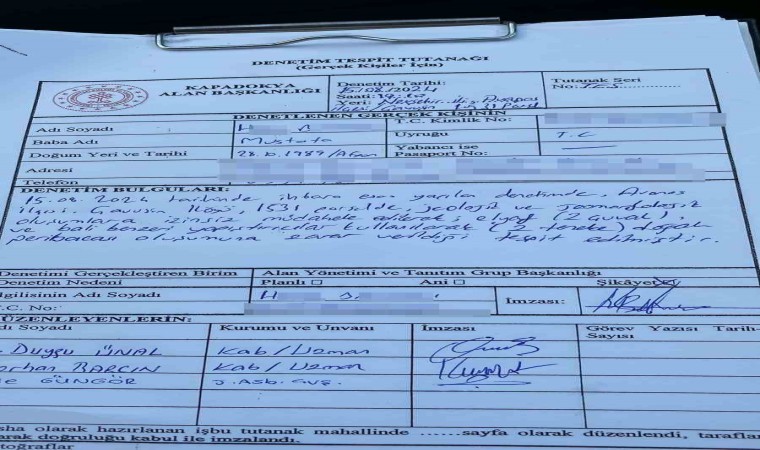 DENETİM TESPİT TUTANAĞI
(Gerçek Kişiler İçin)
KAPADOKYA
ALAN BAŞKANLIĞI
Denetim Tarihi:
15/08/2024
Saati:
Yeri: Nevşehir ili
Tutanak Seri
No:
DENETLENEN GERÇEK KİŞİNİN
Adı Soyadı
T.C. Kimlik No:
Baba Adı
Mustafa
Uyruğu
T.C
Doğum Yeri ve Tarihi
28.6.1989/
Yabancı ise
Pasaport No:
Adresi
Telefon
DENETİM BULGULARI:
15.08.2024 tarihinde ihbara esas yapılan denetimde, Avanos
ilçesi, Çavuşin Köyü, 1531 parselde, jeolojik ve jeomorfolojik
oluşumlara izinsiz müdahale edilerek; elyaf (2 çuval),
ve bali benzeri yapıştırıcılar kullanılarak (2 teneke) doğal
peribacası oluşumuna zarar verildiği tespit edilmiştir.
Denetimi Gerçekleştiren Birim
Alan Yönetimi ve Tanıtım Grup Başkanlığı
Denetim Nedeni
Planlı
Ani
Şikâyet
ilgilisinin Adı Soyadı
İmzası:
T.C. No:
DÜZENLEYENLERİN:
Adı Soyadı
Kurumu ve Unvanı
İmzası
Görev Yazısı Tarih-
Sayısı
Duygu ÜNAL
Kab/Uzman
BARÇIN
Kab/Uzman
GÜNGÖR
J. Asb.
olarak hazırlanan işbu tutanak mahallinde ......sayfa olarak düzenlendi, taraflar
doğruluğu kabul ile imzalandı.